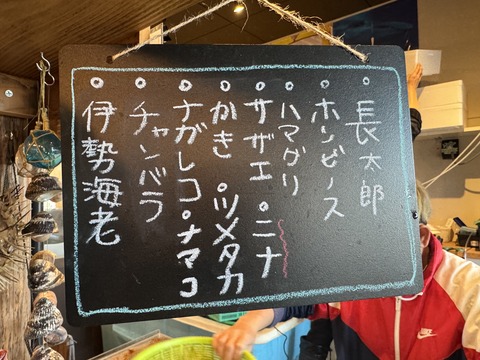 ○ 長太郎
○ ホンビノス
○ ハマグリ
○ サザエ ○ ニナ
○ かき ○ ツメタカ
○ ナガレコ・ナマコ
○ チャンバラ
○ 伊勢海老